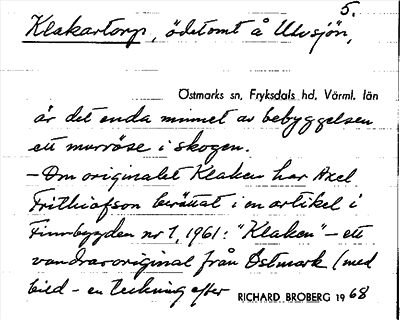 5.
Klakartorp, ödetomt å Ulvsjön,
Östmarks sn, Fryksdals hd, Värml. län
är det enda minnet av bebyggelsen
ett murröse i skogen.
– Om originalet Klaken har Axel
Frithiofson berättat i en artikel i
Finnbygden nr 1, 1961: "Klaken" – ett
vandraroriginal från Östmark (med
bild – en teckning efter
RICHARD BROBERG 1968